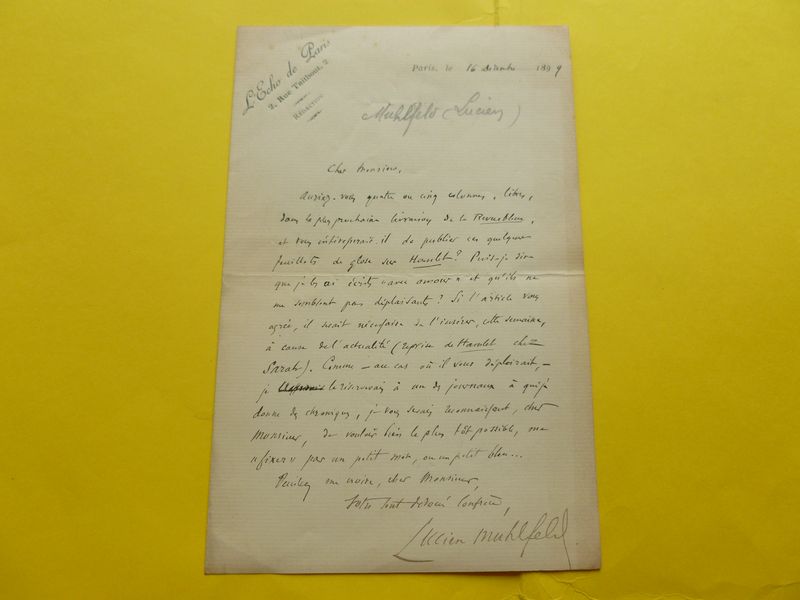 L'Echo de Paris
2, Rue Taitbout, 2
Rédaction
Paris, le 16 décembre 1899
Muhlfeld (Lucien)
Cher Monsieur,
Auriez-vous quatre ou cinq colonnes, libres,
dans la plus prochaine livraison de la Revue Bleue,
et vous intéresserait-il de publier ces quelques
feuillets de glose sur Hamlet? Puis-je dire
que je les ai écrits "avec amour" et qu'ils ne
me semblent pas déplaisants? Si l'article vous
agrée, il serait nécessaire de l'insérer, cette semaine,
à cause de l'actualité (reprise de Hamlet chez
Sarah). Comme — au cas où il vous déplairait, —
je le réservais à un des journaux à qui je
donne des chroniques, je vous serais reconnaissant, cher
Monsieur, de vouloir bien le plus tôt possible, me
"fixer" par un petit mot, ou un petit bleu...
Veuillez me croire, cher Monsieur,
Votre tout dévoué confrère,
Lucien Muhlfeld